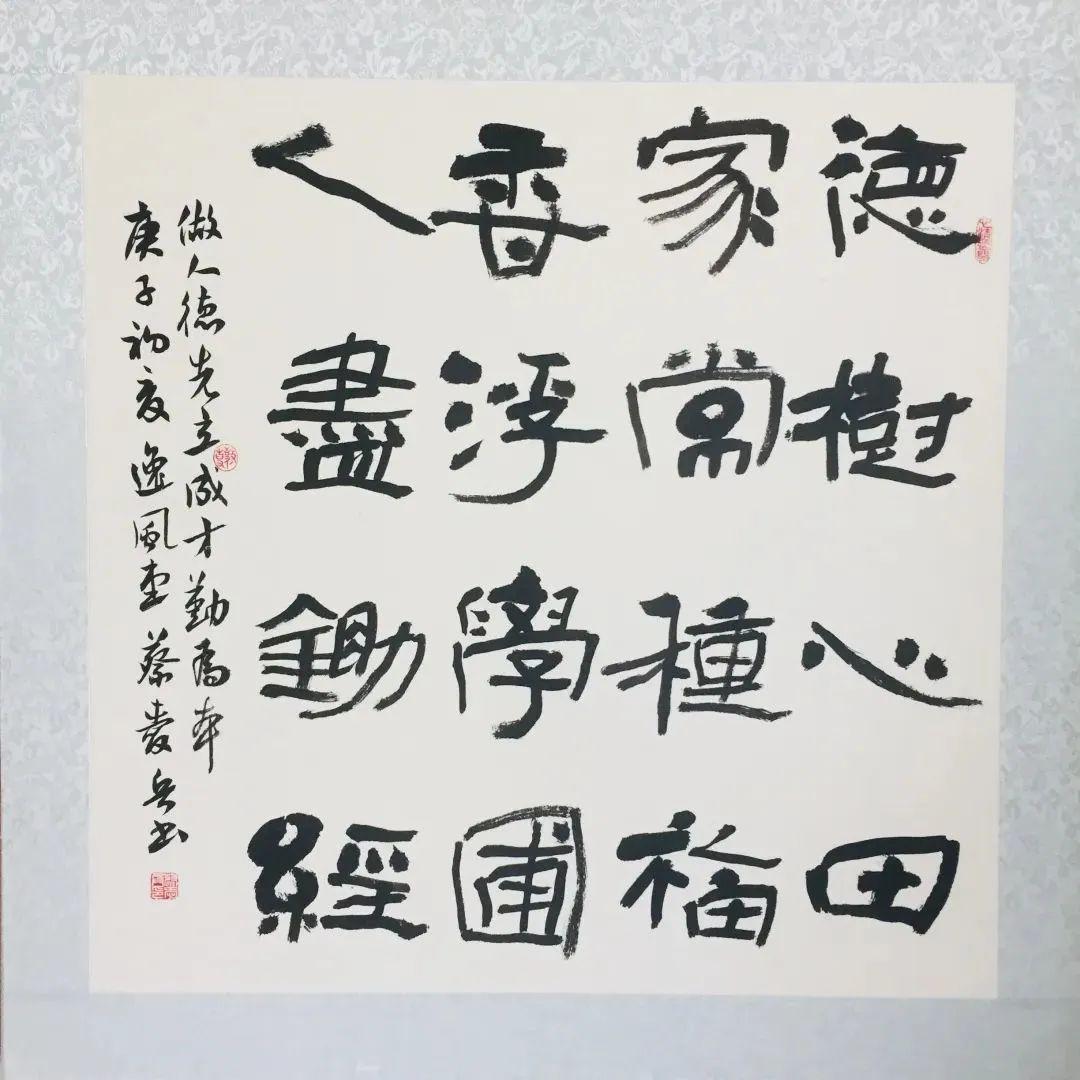 德樹心田
家常種福
香浮學圃
人盡鋤經
做人德先立成才勤為本
庚子初夏逸風堂蔡愛兵书